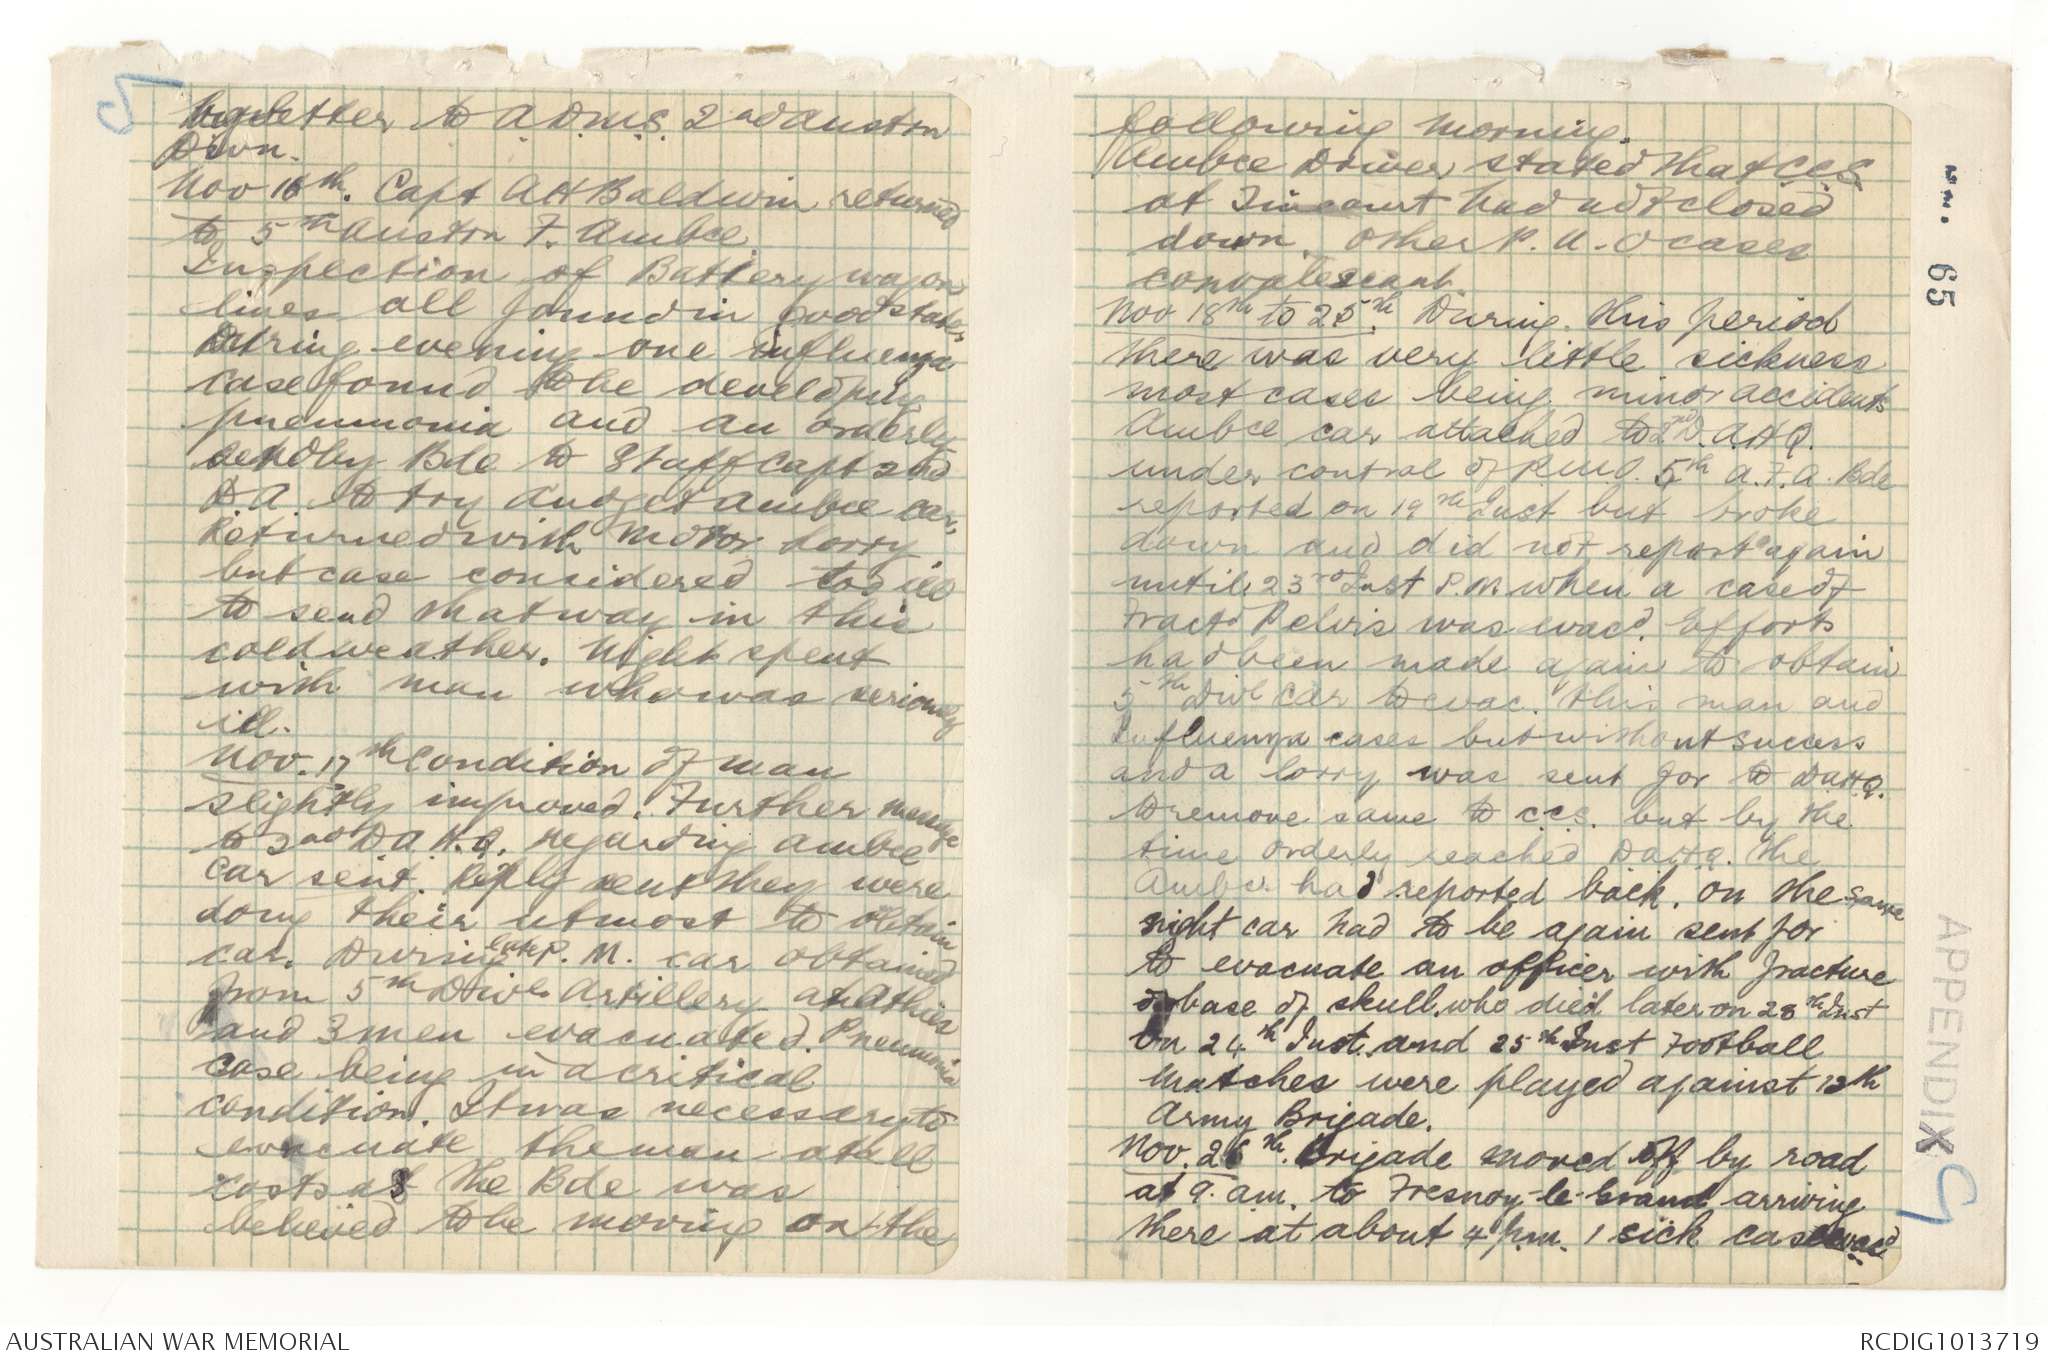 by letter to A.D.M.S. 2nd Austrn
Divn.
Nov 16th. Capt A H Baldwin returned
to 5th Austrn F. Ambce.
Inspection of Battery wagon
lines all found in good state.
During evening one influenza
case found to be developing
pneumonia and an orderly
send by Bde to Staff Capt 2nd
D.A. to try and get Ambce car.
Returned with Motor Lorry
but case considered too ill
to send that way in this
cold weather. Night spent
with man who was seriously
ill.
Nov. 17th Condition of man
slightly improved. Further message
to 2nd D A H.Q. regarding Ambce
Car sent. Reply sent they were
doing their utmost to obtain
car. During late P. M. car obtained
from 5th Divl Artillery at Athies
and 3 men evacuated. Pneumonia
case being in a critical
condition. It was necessary to
evacuate the man at all
costs as the Bde was
believed to be moving on the
following morning.
Ambce Driver stated that CCS
at Tincourt had not closed
down. Other P. U. O cases
convalescant.
Nov 18th to 25th. During this period
there was very little sickness
most cases being minor accidents
Ambce car attached to 2nd D.A.H.Q.
under control of R.M.O. 5th A.F.A. Bde
reported on 19th Inst but broke
down and did not report again
until 23rd Inst P.M. when a case of
Fractd Pelvis was evacd. Efforts
had been made again to obtain
5th Divl Car to evac. this man and
Influenza cases but without success
and a lorry was sent for to DAHQ.
to remove same to C.C.S. but by the
time orderly reached DAHQ. the
Ambce had reported back. On the same
night car had to be again sent for
to evacuate an officer with fracture
of base of skull, who died later on 28th Inst
On 24th Inst. and 25th Inst Football
matches were played against 12th
Army Brigade.
Nov. 26th. Brigade moved off by road
at 9. am. to Fresnoy-le-Grand arriving
there at about 4 p.m. 1 sick case evacd
65
APPENDIX
AUSTRALIAN WAR MEMORIAL
RCDIG1013719